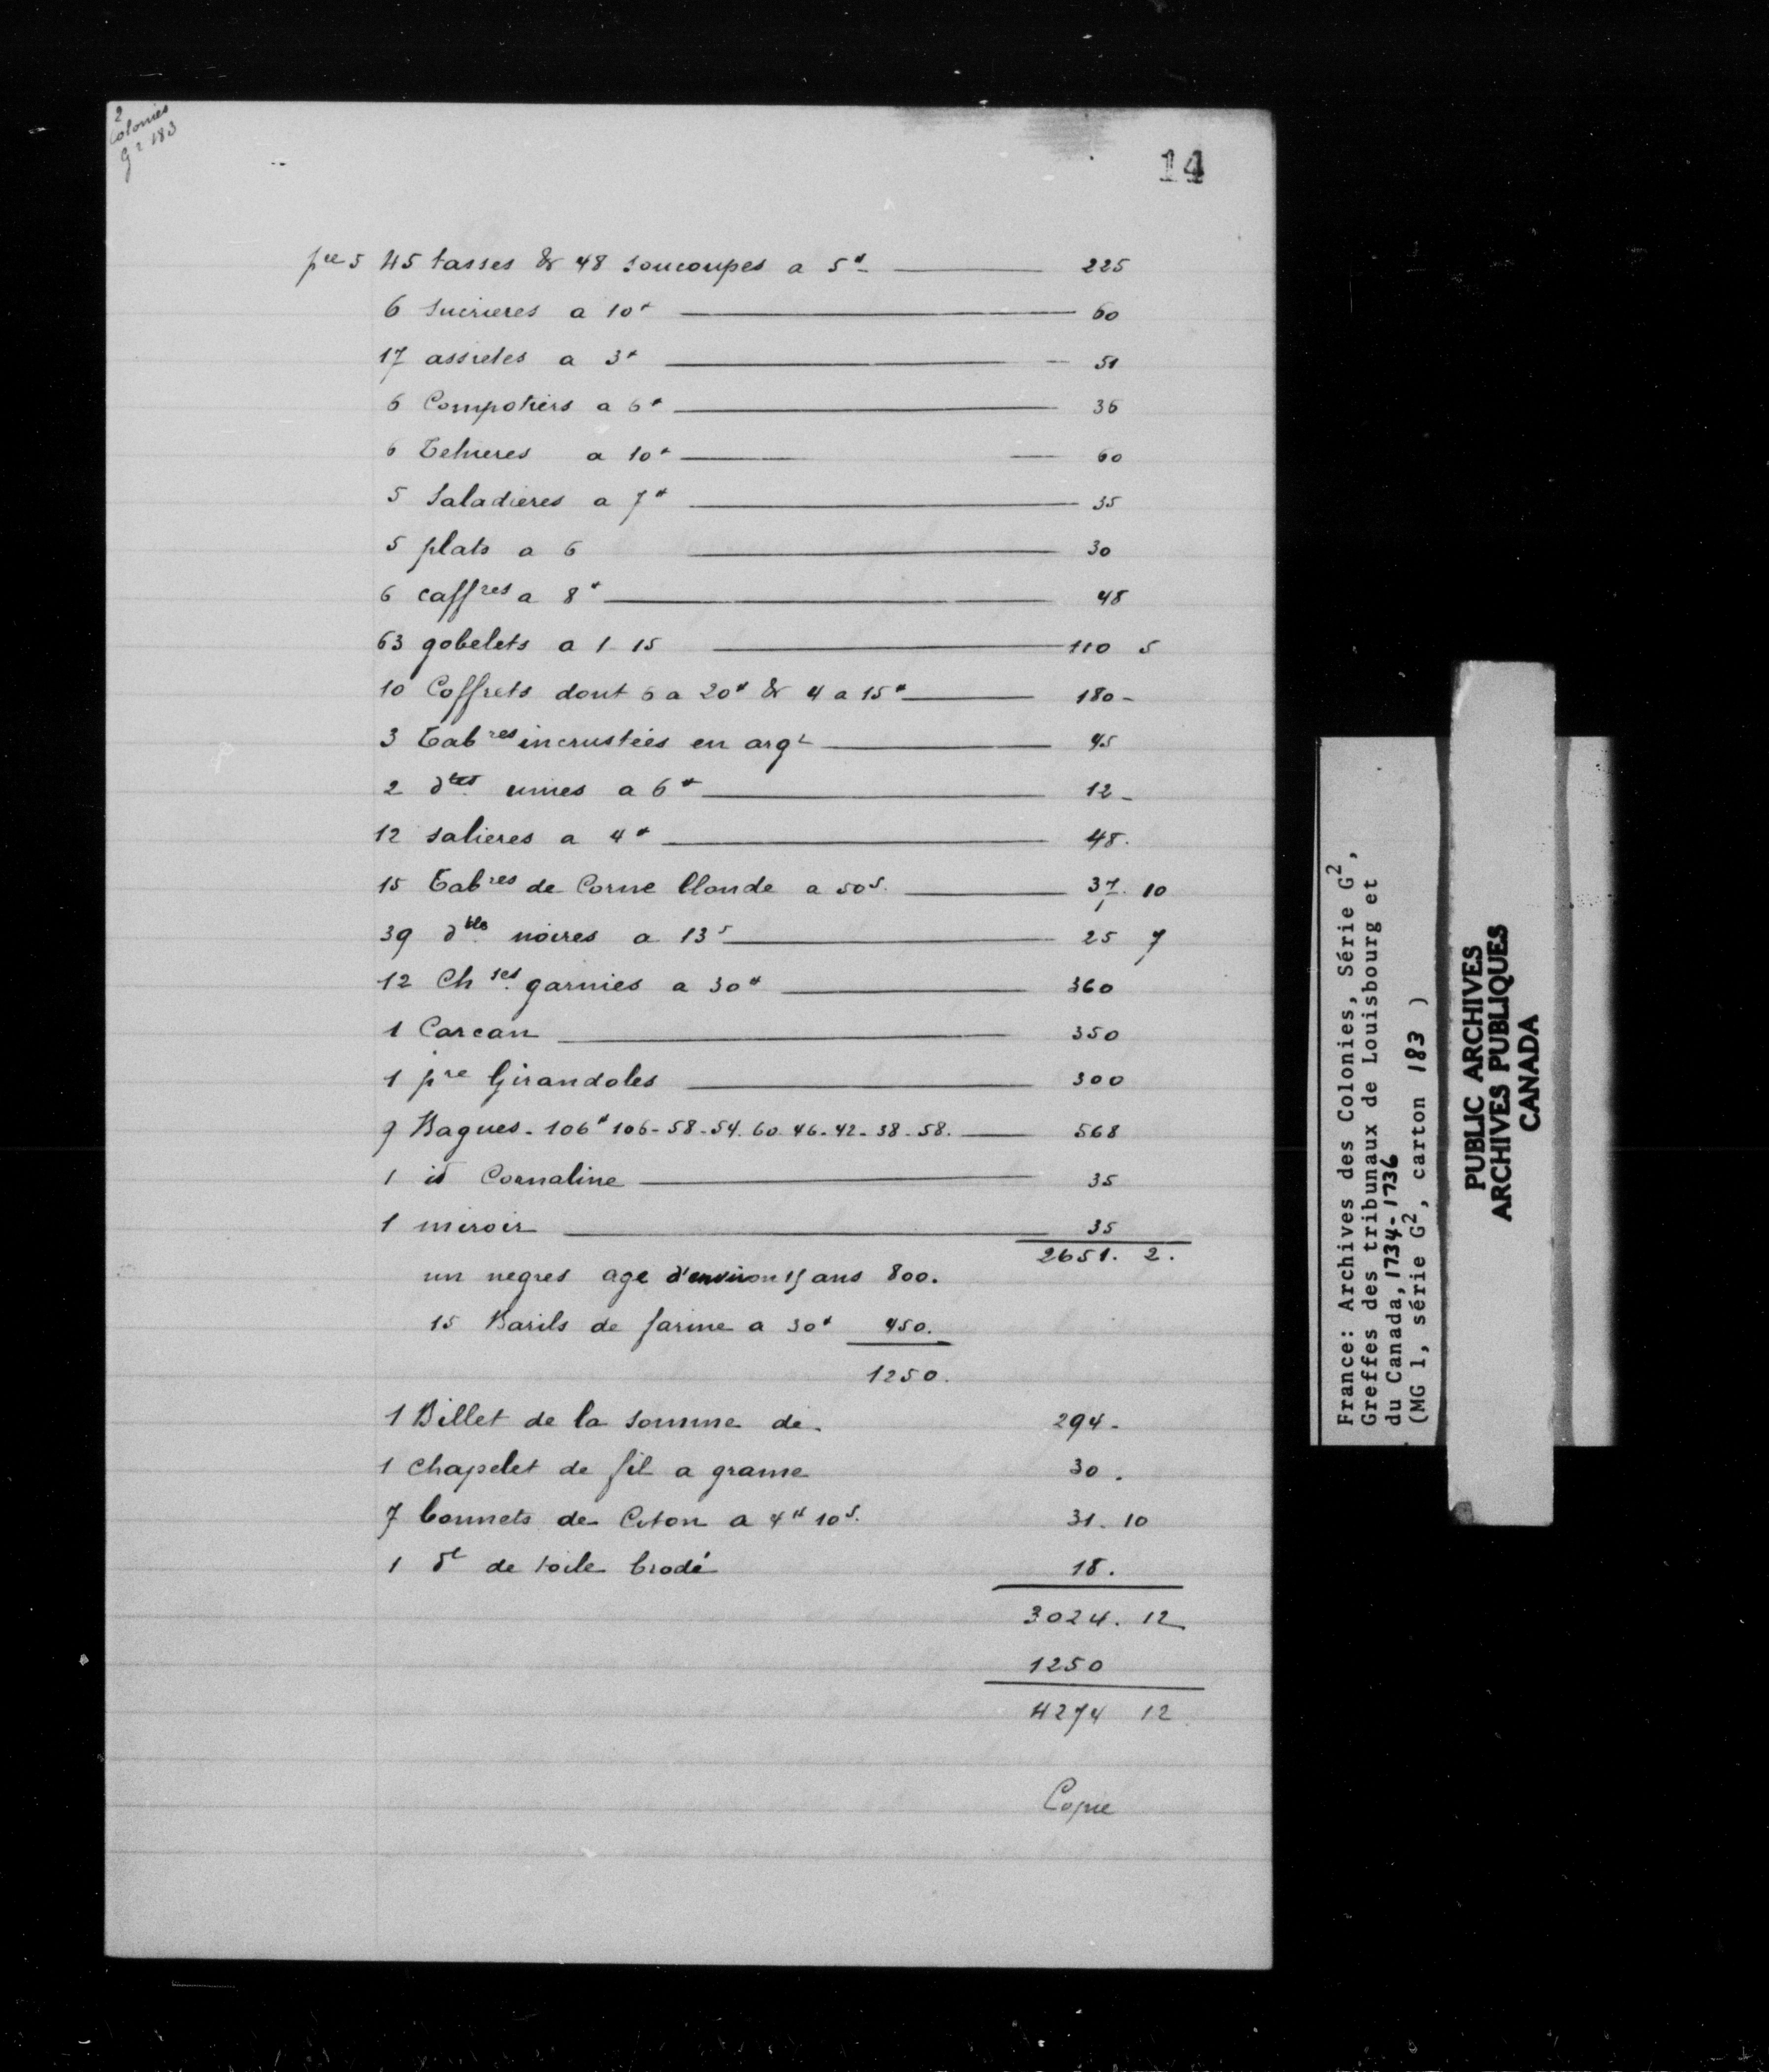 2
Colonies
G2 183
14
pce 5 45 tasses & 48 soucoupes a 5# 225
6 Sucrieres a 10# 60
17 assietes a 3# 51
6 Compotiers a 6# 36
6 Tehieres a 10# 60
5 Saladieres a 7# 35
5 plats a 6 30
6 caffres a 8# 48
63 gobelets a 1 15 110 5
10 Coffrets dont 6 a 20# & 4 a 15# 180 -
3 Tabres incrustées en argt 45
2 dtes unies a 6# 12 -
12 salieres a 4# 48.
15 Tabres de Corne blonde a 50s. 37. 10
39 dtes noires a 13s 25 7
12 Chses. garnies a 30# 360
1 Carcan 350
1 pre Girandoles 300
9 Bagues - 106# 106 - 58 - 54. 60 46 - 42 - 38 - 58. 568
1 id Cornaline 35
1 miroir 35
2651. 2.
un negres age d'environ 15 ans 800.
15 Barils de farine a 30# 450.
1250.
1 Billet de la somme de 294 -
1 chapelet de fil a grame 30.
7 bonnets de Coton a 4# 10s. 31 - 10
1 dt de toile brodé 18.
3024. 12
1250
4274 12
Copie
France: Archives des Colonies, Série G2,
Greffes des tribunaux de Louisbourg et
du Canada, 1734-1736
(MG 1, série G2, carton 183 )
PUBLIC ARCHIVES
ARCHIVES PUBLIQUES
CANADA